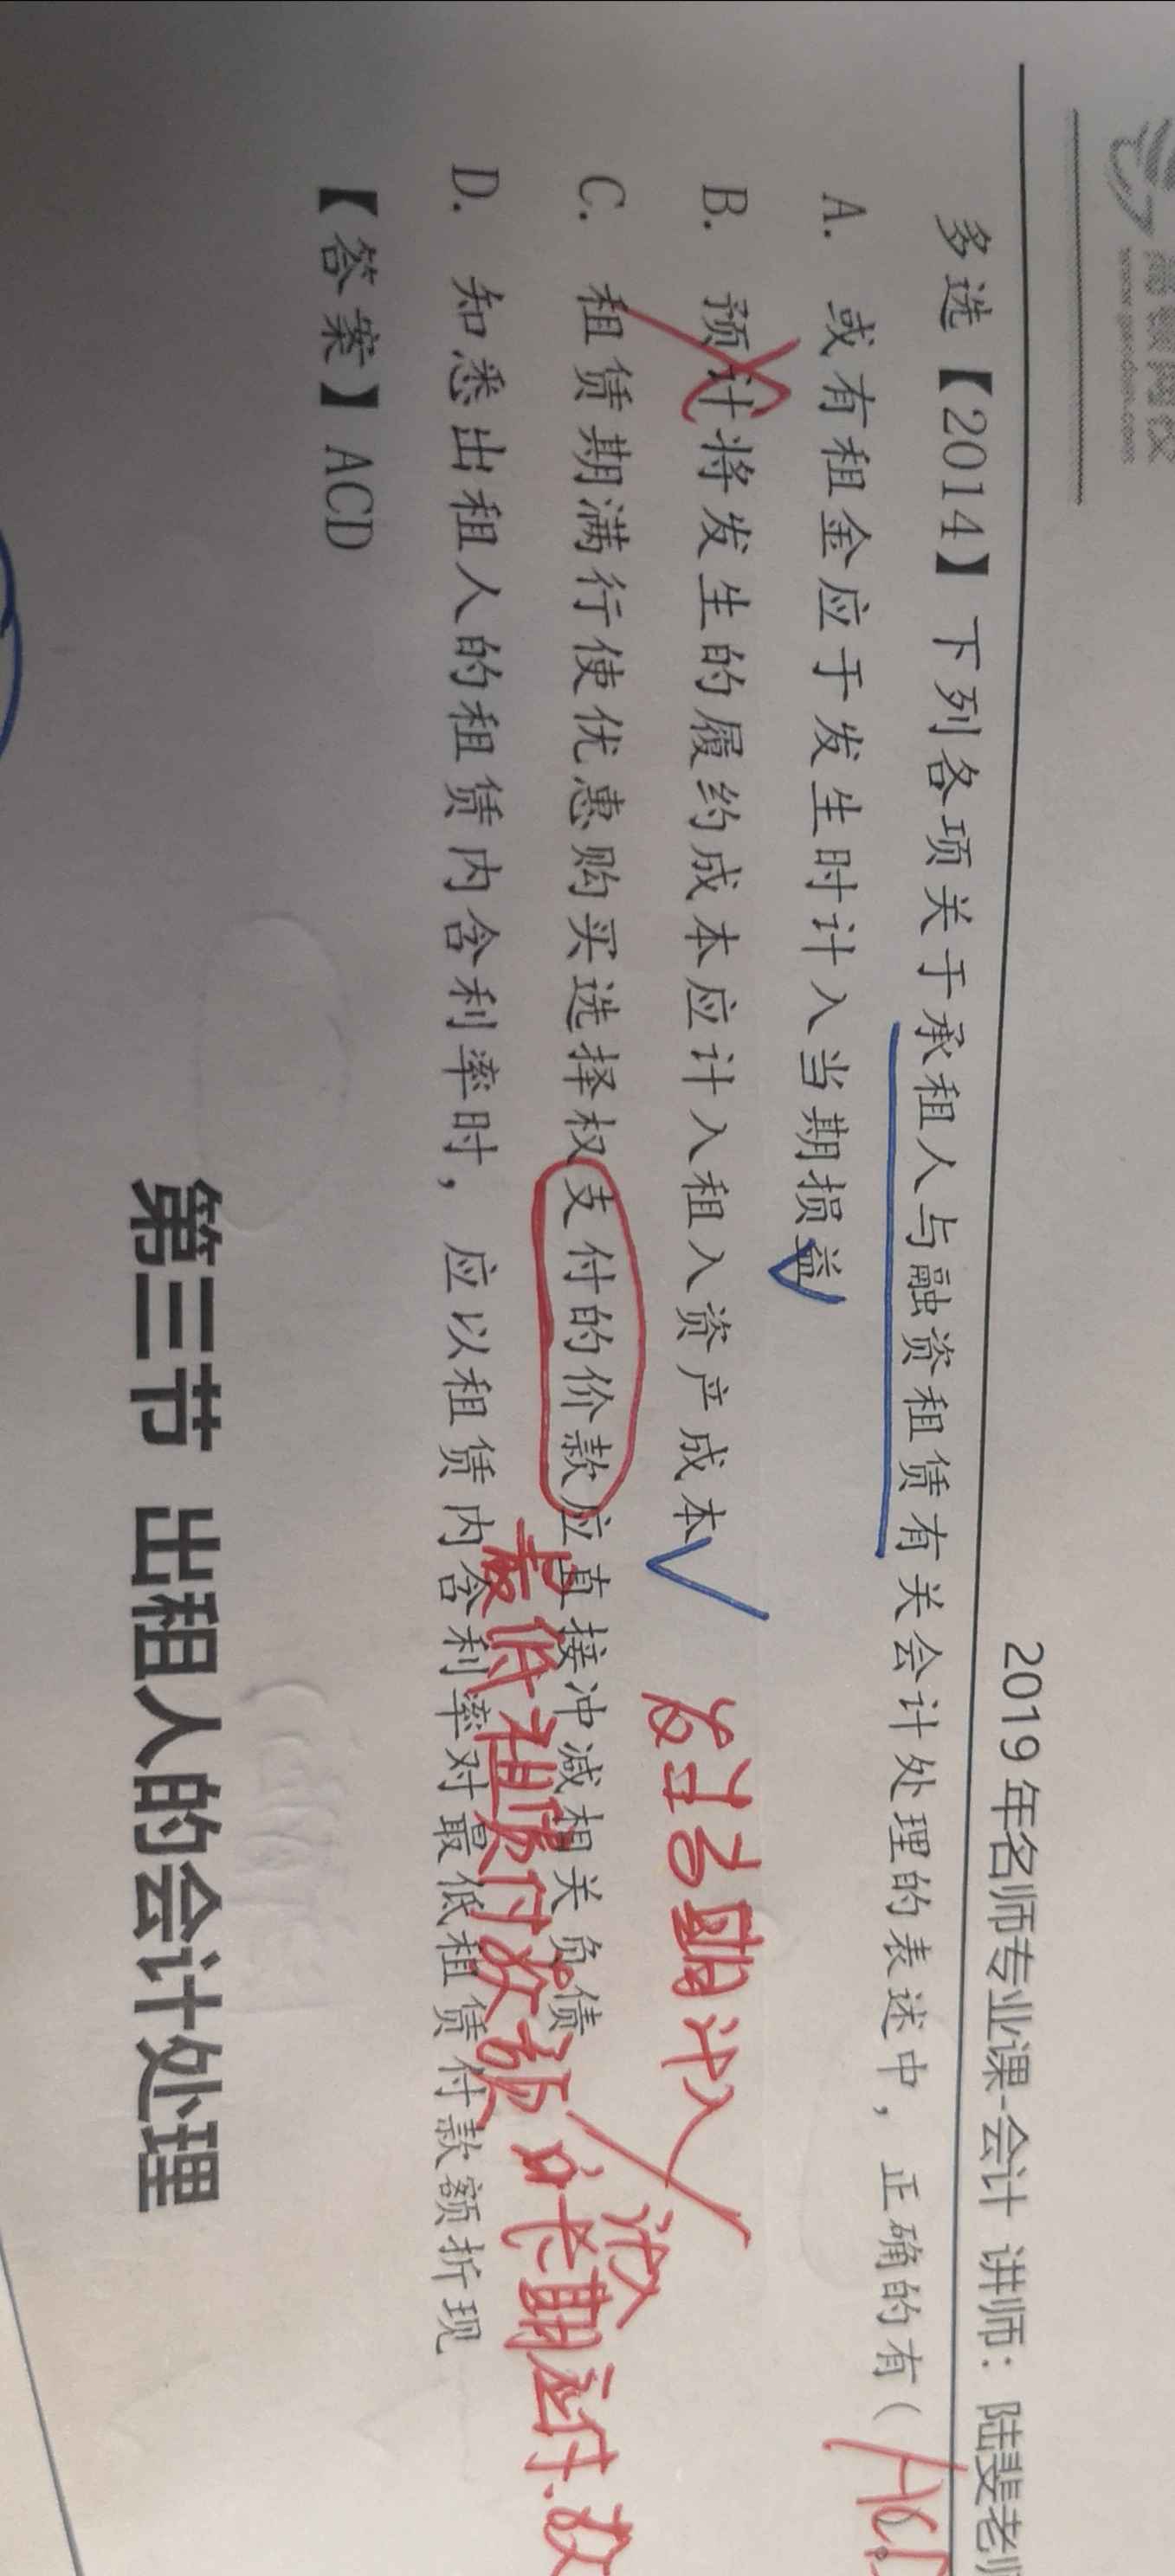 高顿网校
www.gaodun.com
2019 年名师专业课-会计 讲师：陆斐老师
多选【2014】下列各项关于承租人与融资租赁有关会计处理的表述中，正确的有（
ACD
A. 或有租金应于发生时计入当期损益
B. 预计将发生的履约成本应计入租入资产成本
发生当期计入
C. 租赁期满行使优惠购买选择权支付的价款应直接冲减相关负债
最低租赁付款额
长期应付款
D. 知悉出租人的租赁内含利率时，应以租赁内含利率对最低租赁付款额折现
【答案】ACD
第三节 出租人的会计处理